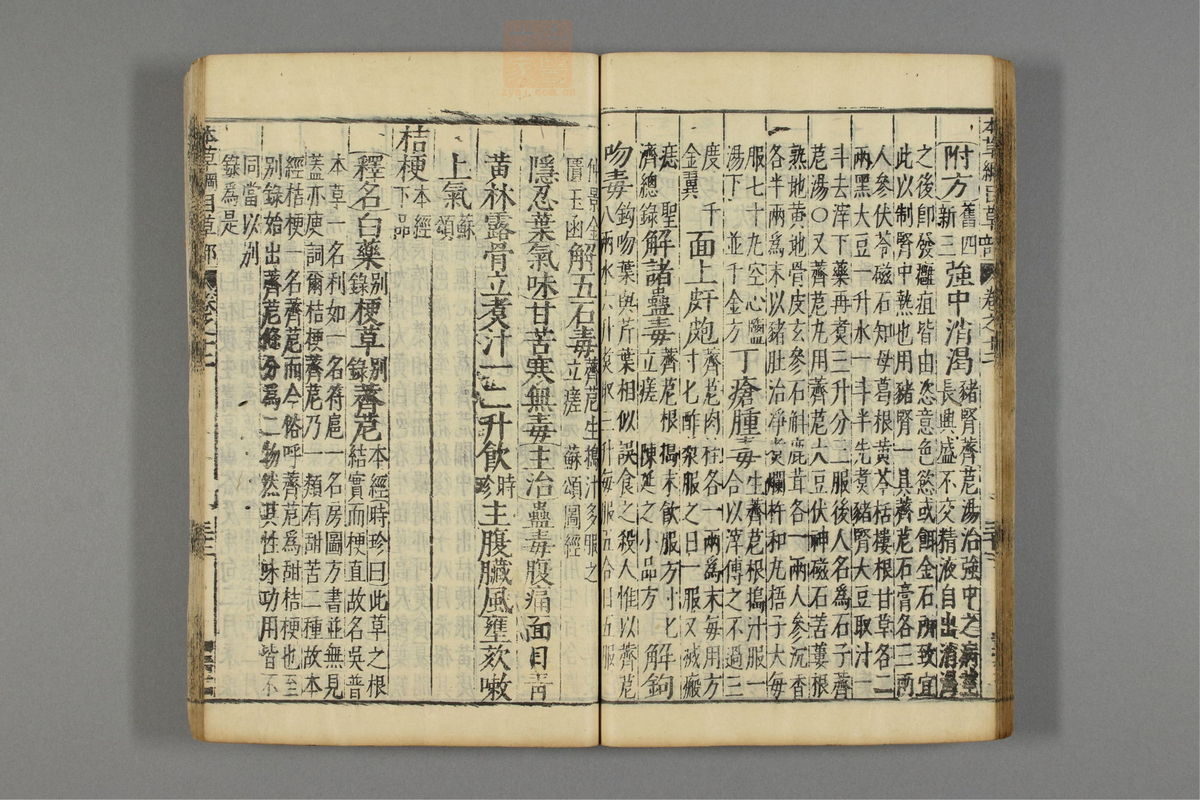 本草綱目草部 卷之十二
附方舊四新三強中消渴豬腎薺苨湯治強中之病莖長興盛不交精液自出消渴
之後即發癰疽皆由恣意色慾或餌金石所致宜
此以制腎中熱也用豬腎一具薺苨石膏各三兩
人參伏苓磁石知母葛根黃芩栝樓根甘草各二
兩黑大豆一升水一斗半先煮豬腎大豆取汁一
斗去滓下藥再煮三升分三服後人名爲石子薺
苨湯○又薺苨丸用薺苨大豆伏神磁石苦蔞根
熟地黃地骨皮玄參石斛鹿茸各一兩人參沉香
各半兩爲末以豬肚治淨煮爛杵和丸梧子大每
服七十丸空心鹽湯下 並千金方丁瘡腫毒生薺苨根擣汁服一合以滓傅之不過三
度 千金翼面上皯皰薺苨肉桂各一兩爲末每用方寸匕酢漿服之日一服又滅瘢
痣 聖濟總錄解諸蠱毒薺苨根擣末飲服方寸匕立瘥 陳延之小品方解鉤
吻毒鉤吻葉與芹葉相似誤食之殺人惟以薺苨八兩水六升煑取三升每服五合日五服
仲景金匱玉函解五石毒薺苨生擣汁多服之立瘥 蘇頌圖經
隱忍葉氣味甘苦寒無毒主治蠱毒腹痛面目靑
黃林露骨立煑汁一二升飲時珍主腹臟風壅欬嗽
上氣蘇頌
桔梗本經下品
釋名白藥別錄梗草別錄薺苨本經時珍曰此草之根結實而梗直故名吳普
本草一名利如一名符扈一名房圖方書並無見
蓋亦廋詞爾桔梗薺苨乃一類有甜苦二種故本
經桔梗一名薺苨而今俗呼薺苨爲甜桔梗也至
別錄始出薺苨條分爲二物然其性味功用皆不
同當以別
錄爲是
本草綱目草部 卷之十二